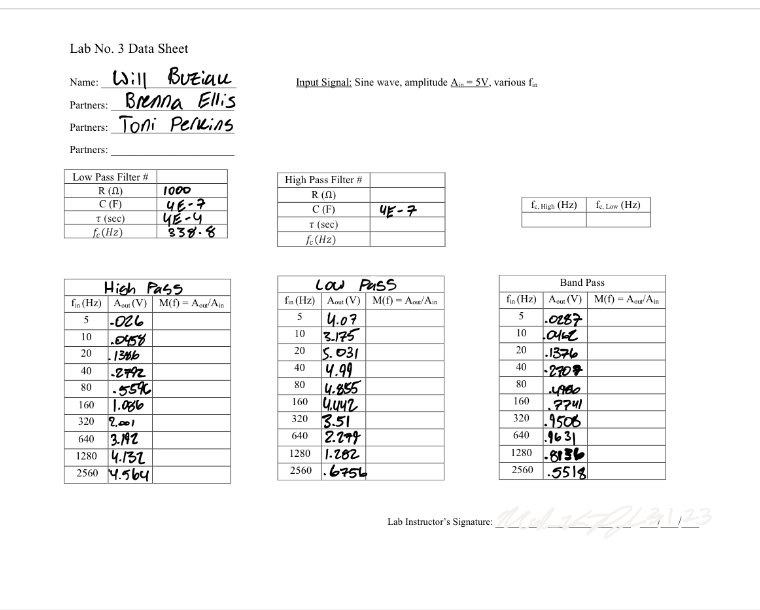 Lab No. 3 Data Sheet
Name: Will Buziau
Input Signal: Sine wave, amplitude Ain = 5V, various fin
Partners: Brenna Ellis
Partners: Toni Perkins
Partners:
Low Pass Filter #
R (Ω) 1000
C (F) 4E-7
τ (sec) 4E-4
fc(Hz) 338.8
High Pass Filter #
R (Ω)
C (F) 4E-7
τ (sec)
fc(Hz)
fc, High (Hz) fc, Low (Hz)
High Pass
fin (Hz) Aout (V) M(f) = Aout/Ain
5 .026
10 .0458
20 .1386
40 .2792
80 .5596
160 1.086
320 2.001
640 3.192
1280 4.132
2560 4.564
Low Pass
fin (Hz) Aout (V) M(f) = Aout/Ain
5 4.07
10 3.175
20 5.031
40 4.99
80 4.855
160 4.442
320 3.51
640 2.299
1280 1.282
2560 .6756
Band Pass
fin (Hz) Aout (V) M(f) = Aout/Ain
5 .0287
10 .0462
20 .1376
40 .2707
80 .4986
160 .7741
320 .9508
640 .9631
1280 .8136
2560 .5518
Lab Instructor's Signature: 3/1/23